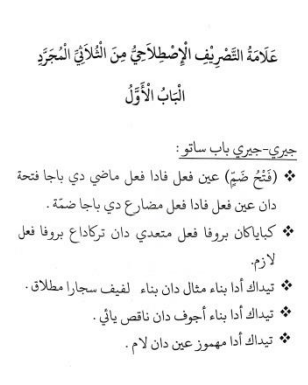 عَلَامَةُ التَّصْرِيْفِ الْإِصْطِلَاحِيُّ مِنَ الثُّلَاثِيِّ الْمُجَرَّدِ
الْبَابُ الْأَوَّلُ
جيري-جيري باب ساتو :
❖ (فَتْحُ ضَمٍّ) عين فعل فادا فعل ماضي دي باجا فتحة
دان عين فعل فادا فعل مضارع دي باجا ضمّة .
❖ كباياكان بروفا فعل متعدي دان تركاداع بروفا فعل
لازم.
❖ تيداك أدا بناء مثال دان بناء لفيف سجارا مطلاق .
❖ تيداك أدا بناء أجوف دان ناقص يائي .
❖ تيداك أدا مهموز عين دان لام .